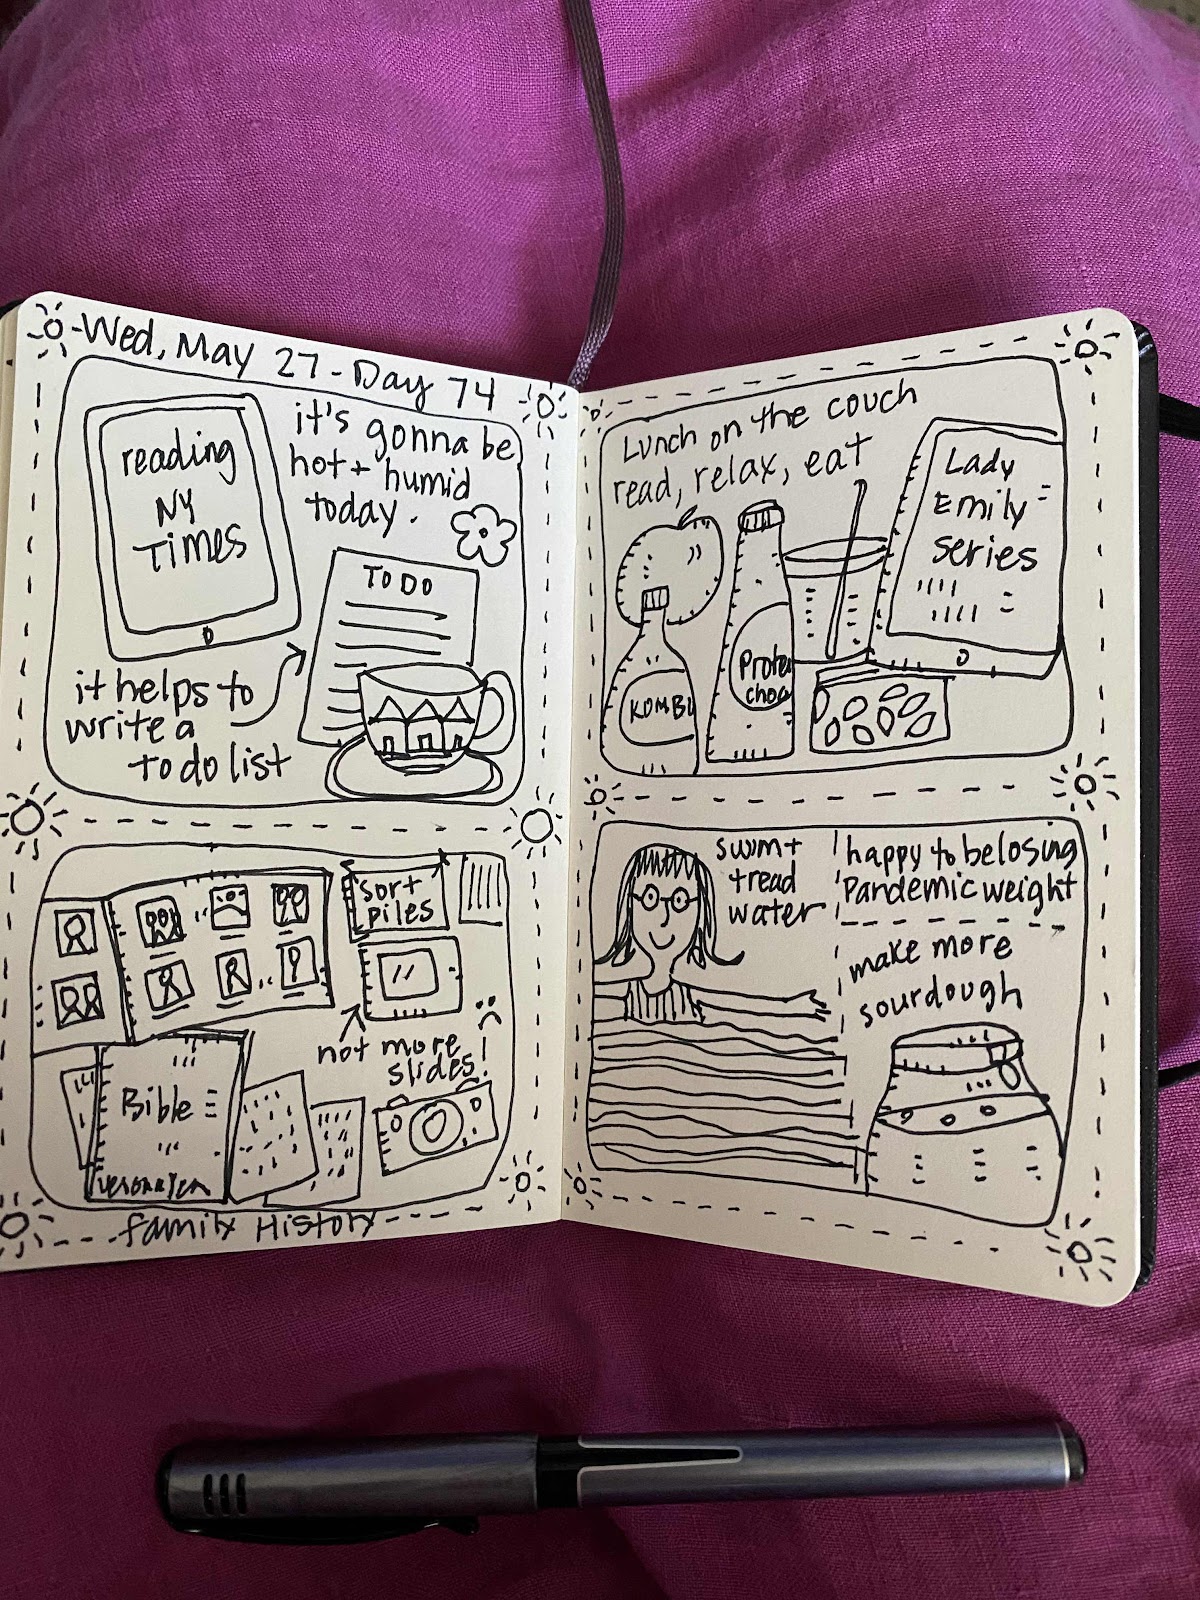 Wed, May 27 - Day 74
reading
NY
Times
it's gonna be
hot + humid
today.
TO DO
it helps to
write a
to do list
sort
piles
not more
slides!
Bible
Family History
Lunch on the couch
read, relax, eat
Lady
Emily
series
KOMBU
Prote
choc
swim +
tread
water
happy to be losing
Pandemic weight
make more
sourdough